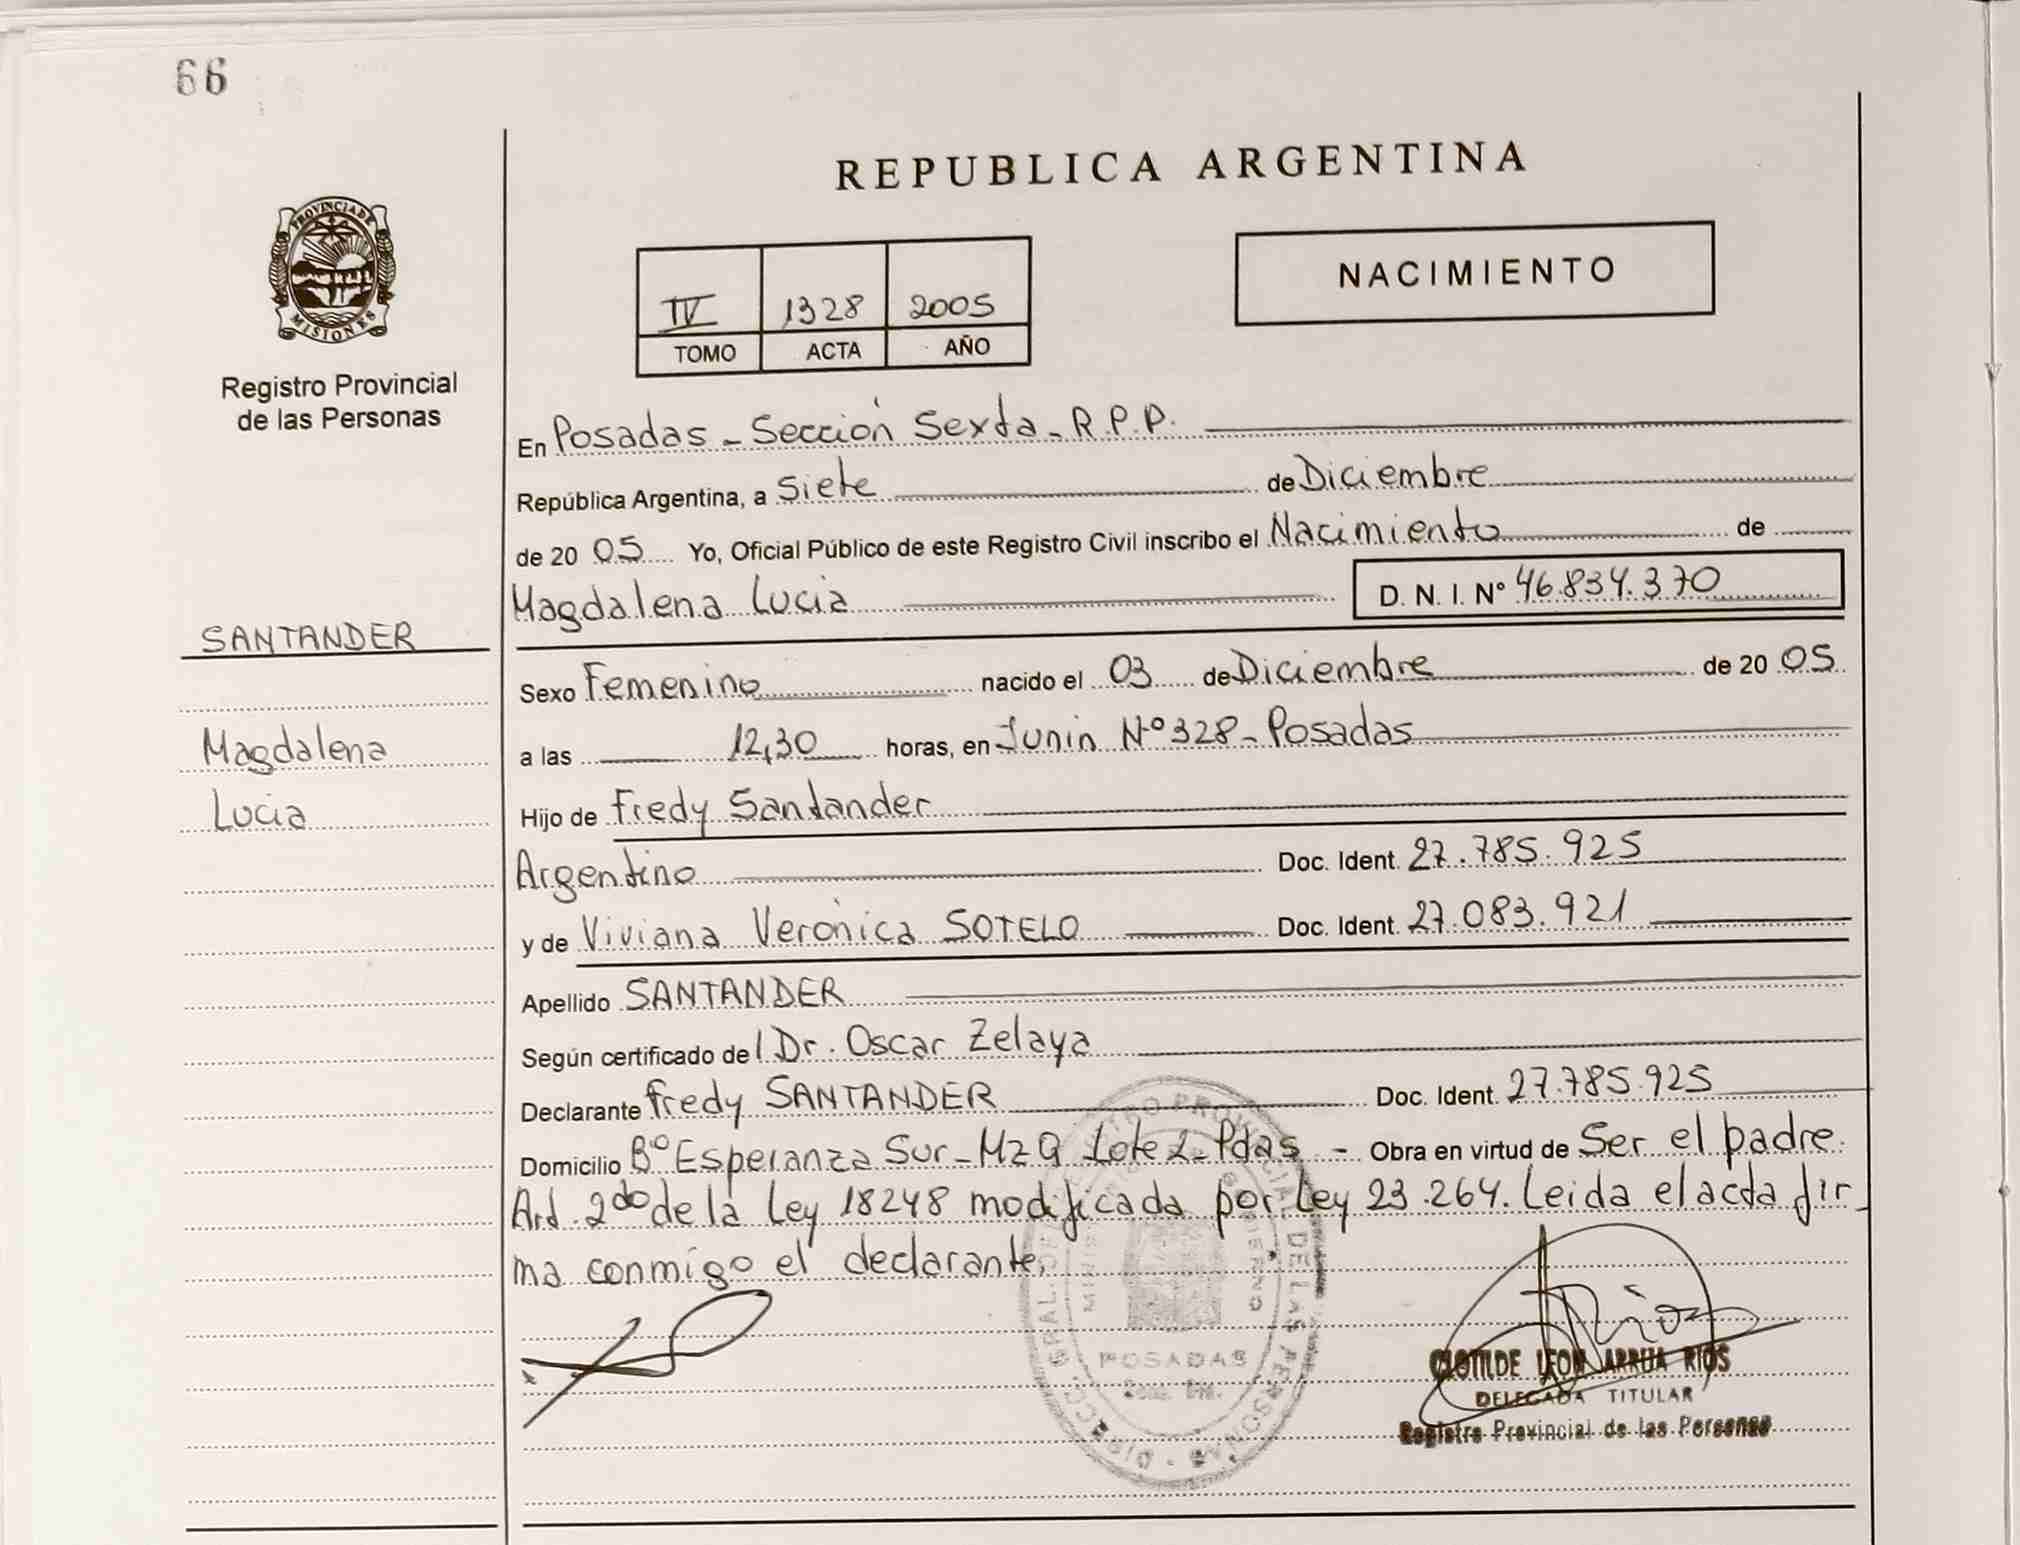 66
PROVINCIA DE
MISIONES
Registro Provincial
de las Personas
SANTANDER
Magdalena
Lucia
REPUBLICA ARGENTINA
IV 1328 2005
TOMO ACTA AÑO
NACIMIENTO
En Posadas - Sección Sexta - R.P.P.
República Argentina, a Siete de Diciembre
de 20 05 Yo, Oficial Público de este Registro Civil inscribo el Nacimiento de
Magdalena Lucia D. N. I. Nº 46.834.370
Sexo Femenino nacido el 03 de Diciembre de 20 05
a las 12,30 horas, en Junin Nº 328 - Posadas
Hijo de Fredy Santander
Argentino Doc. Ident. 27.785.925
y de Viviana Verónica SOTELO Doc. Ident. 27.083.921
Apellido SANTANDER
Según certificado del Dr. Oscar Zelaya
Declarante Fredy SANTANDER Doc. Ident. 27.785.925
Domicilio Bº Esperanza Sur - Mz G Lote 2 - Pdas - Obra en virtud de Ser el padre.
Art. 2do de la Ley 18248 modificada por Ley 23.264. Leida el acta fir_
ma conmigo el declarante.
POSADAS
CLOTILDE LEON ARRUA RIOS
DELEGADA TITULAR
Registro Provincial de las Personas